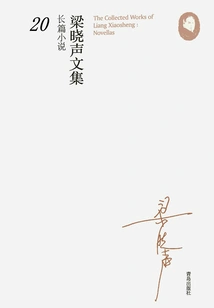 The Collected Works of
Liang Xiaosheng :
Novellas
梁晓声文集
长篇小说
20
梁晓声
青岛出版社